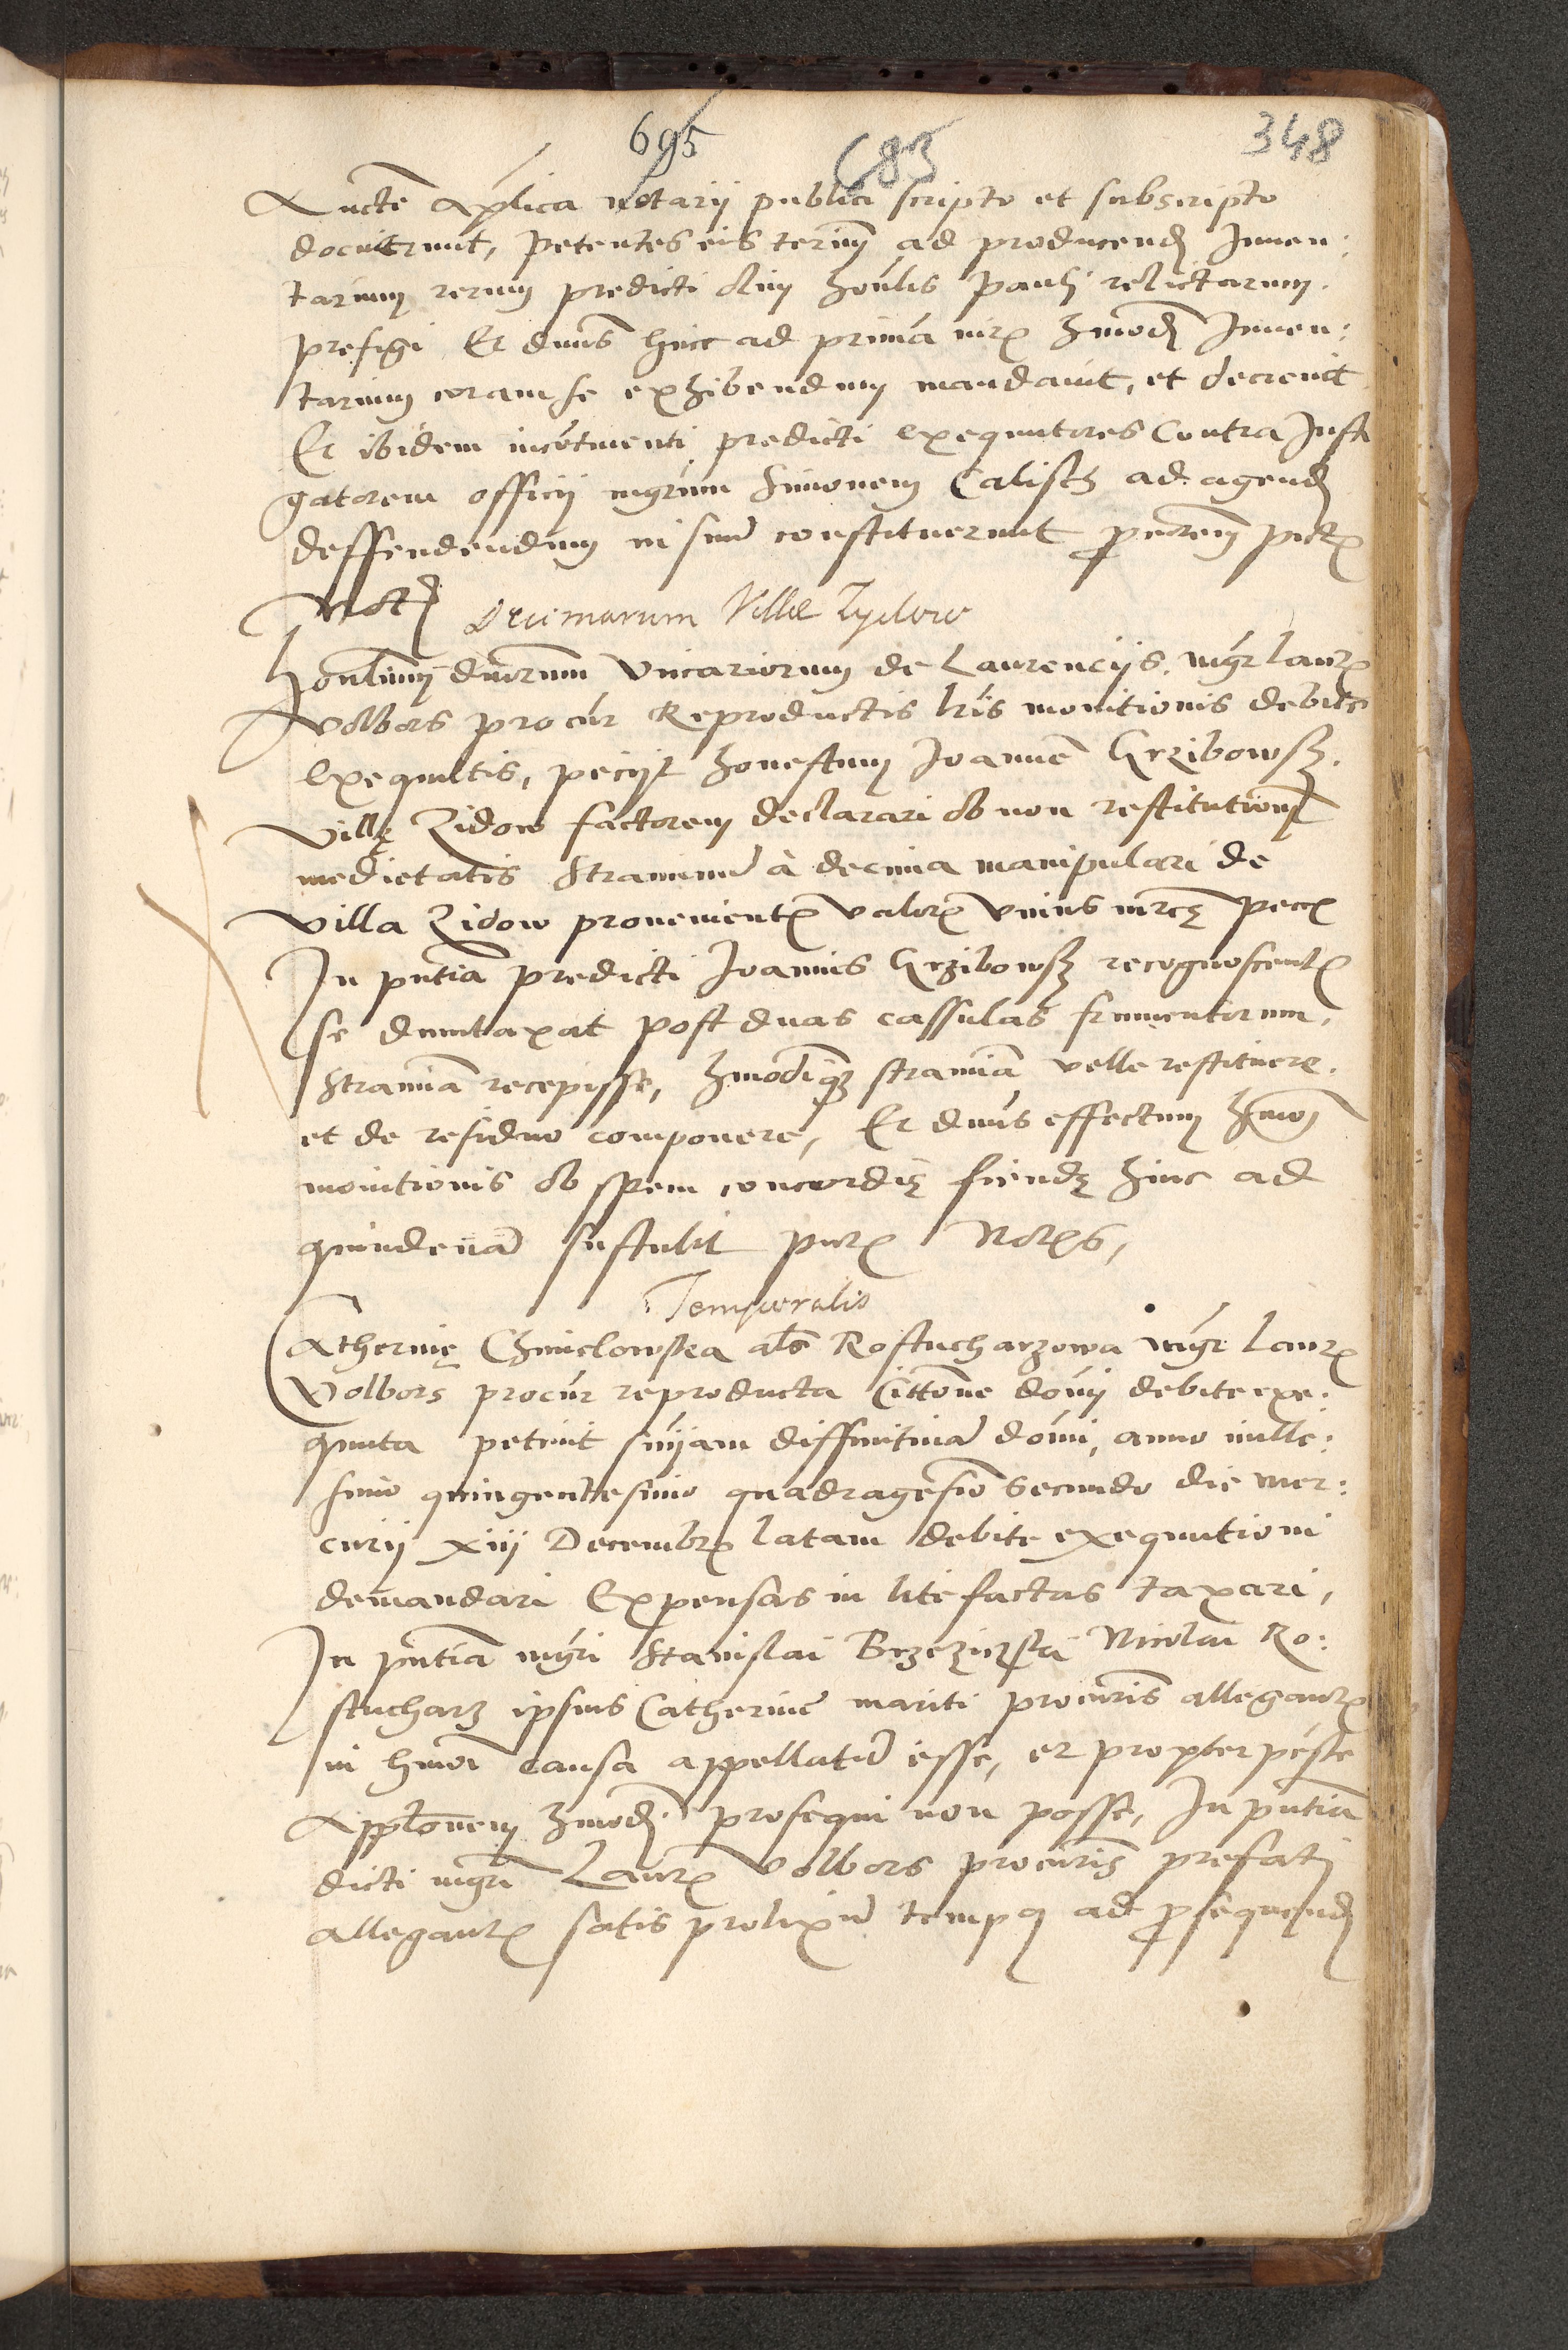 695 683 348
Auctē Aplica notarij publici scripto et subscripto
docuerunt, Petentes eis termī ad producend Inuen:
tarium rerum predicti olim honlis Pauli relictarum
prefigi Et dnus hinc ad prima iur hmodi Inuen:
tarium coram se exhibendum mandauit, et decreuit
Et ibidem incōtinenti predicti exequutores Contra Insti
gatorem officij mgrum Simonem Calisch ad agend
deffendendum in simul constituerunt procrem put
Not
Decimarum Villæ Zydow
Honlium dnorum Vicariorum de Laurencijs, mgr Laur
Volbors procur Reproductis lris monitionis debite
exequutis, pecijt honestum Joannē Grzibowsk
Villę Zidow factorem declarari ob non restitutionē
medietatis straminū à decima manipulari de
Villa Zidow prouenient valor Vnius mrcę pecc
In pntia predicti Joannis Grzibowsk recognoscent
se duntaxat post duas cassulas frumentorum,
stramia recepisse, hmodiqz stramia velle restituere.
et de residuo componere, Et dnus effectum hmoi
monitionis ob spem concordię fiendę hinc ad
quindenā sustulit pntr Notr,
Temporalis
Catherinę Chmielowska als Rostucharzowa mgr Laur
Volbors procur reproducta Cittone domj debite exe:
quuta petiuit snijam diffinitiuā domi, anno mille:
simo quingentesimo quadragesio secundo die Mer:
curij xiij Decembr latam debite exequutioni
demandari Expensas in lite factas taxari,
In pntia mgri Stanislai Brzezinski Nicolai Ro:
stucharz ipsius Catherine mariti procuris allegant
in hmoi causa appellatū esse, et propter pestē
Applonem hmodi prosequi non posse, In pntia
dicti mgri Laur Volbors procuris prefati
allegant satis prolixū tempus ad prosequend